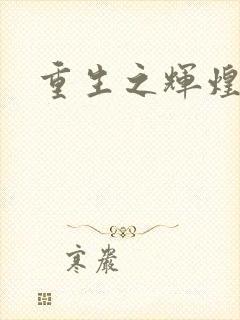 重生之輝煌
寒嚴